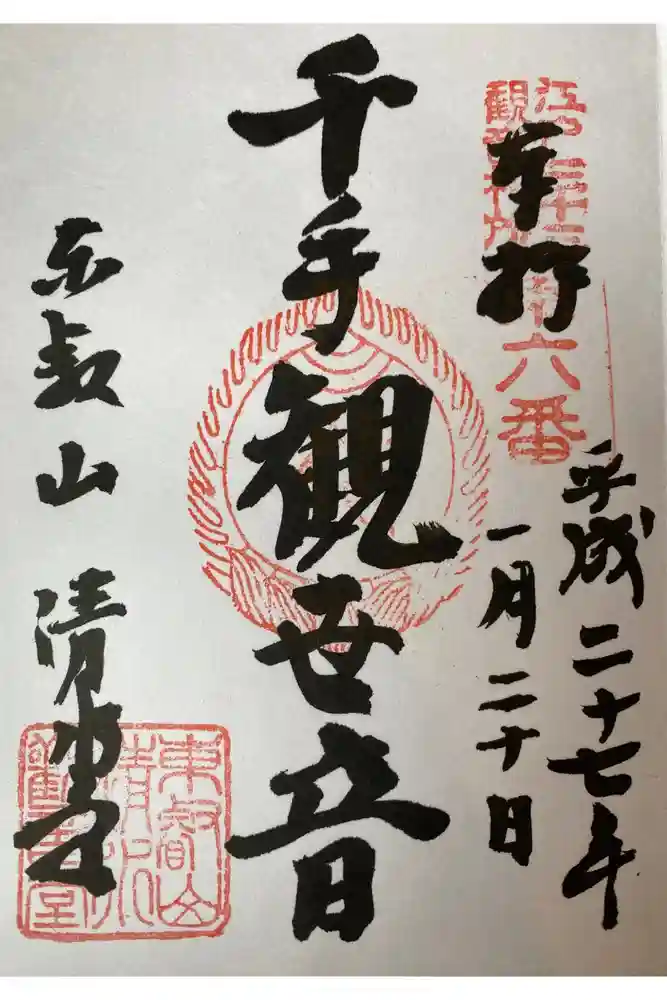 江戸三十三
観音札所
第六番
奉拝
平成二十七年
一月二十日
千手観世音
東叡山 清水堂
東叡山
清水
觀音堂